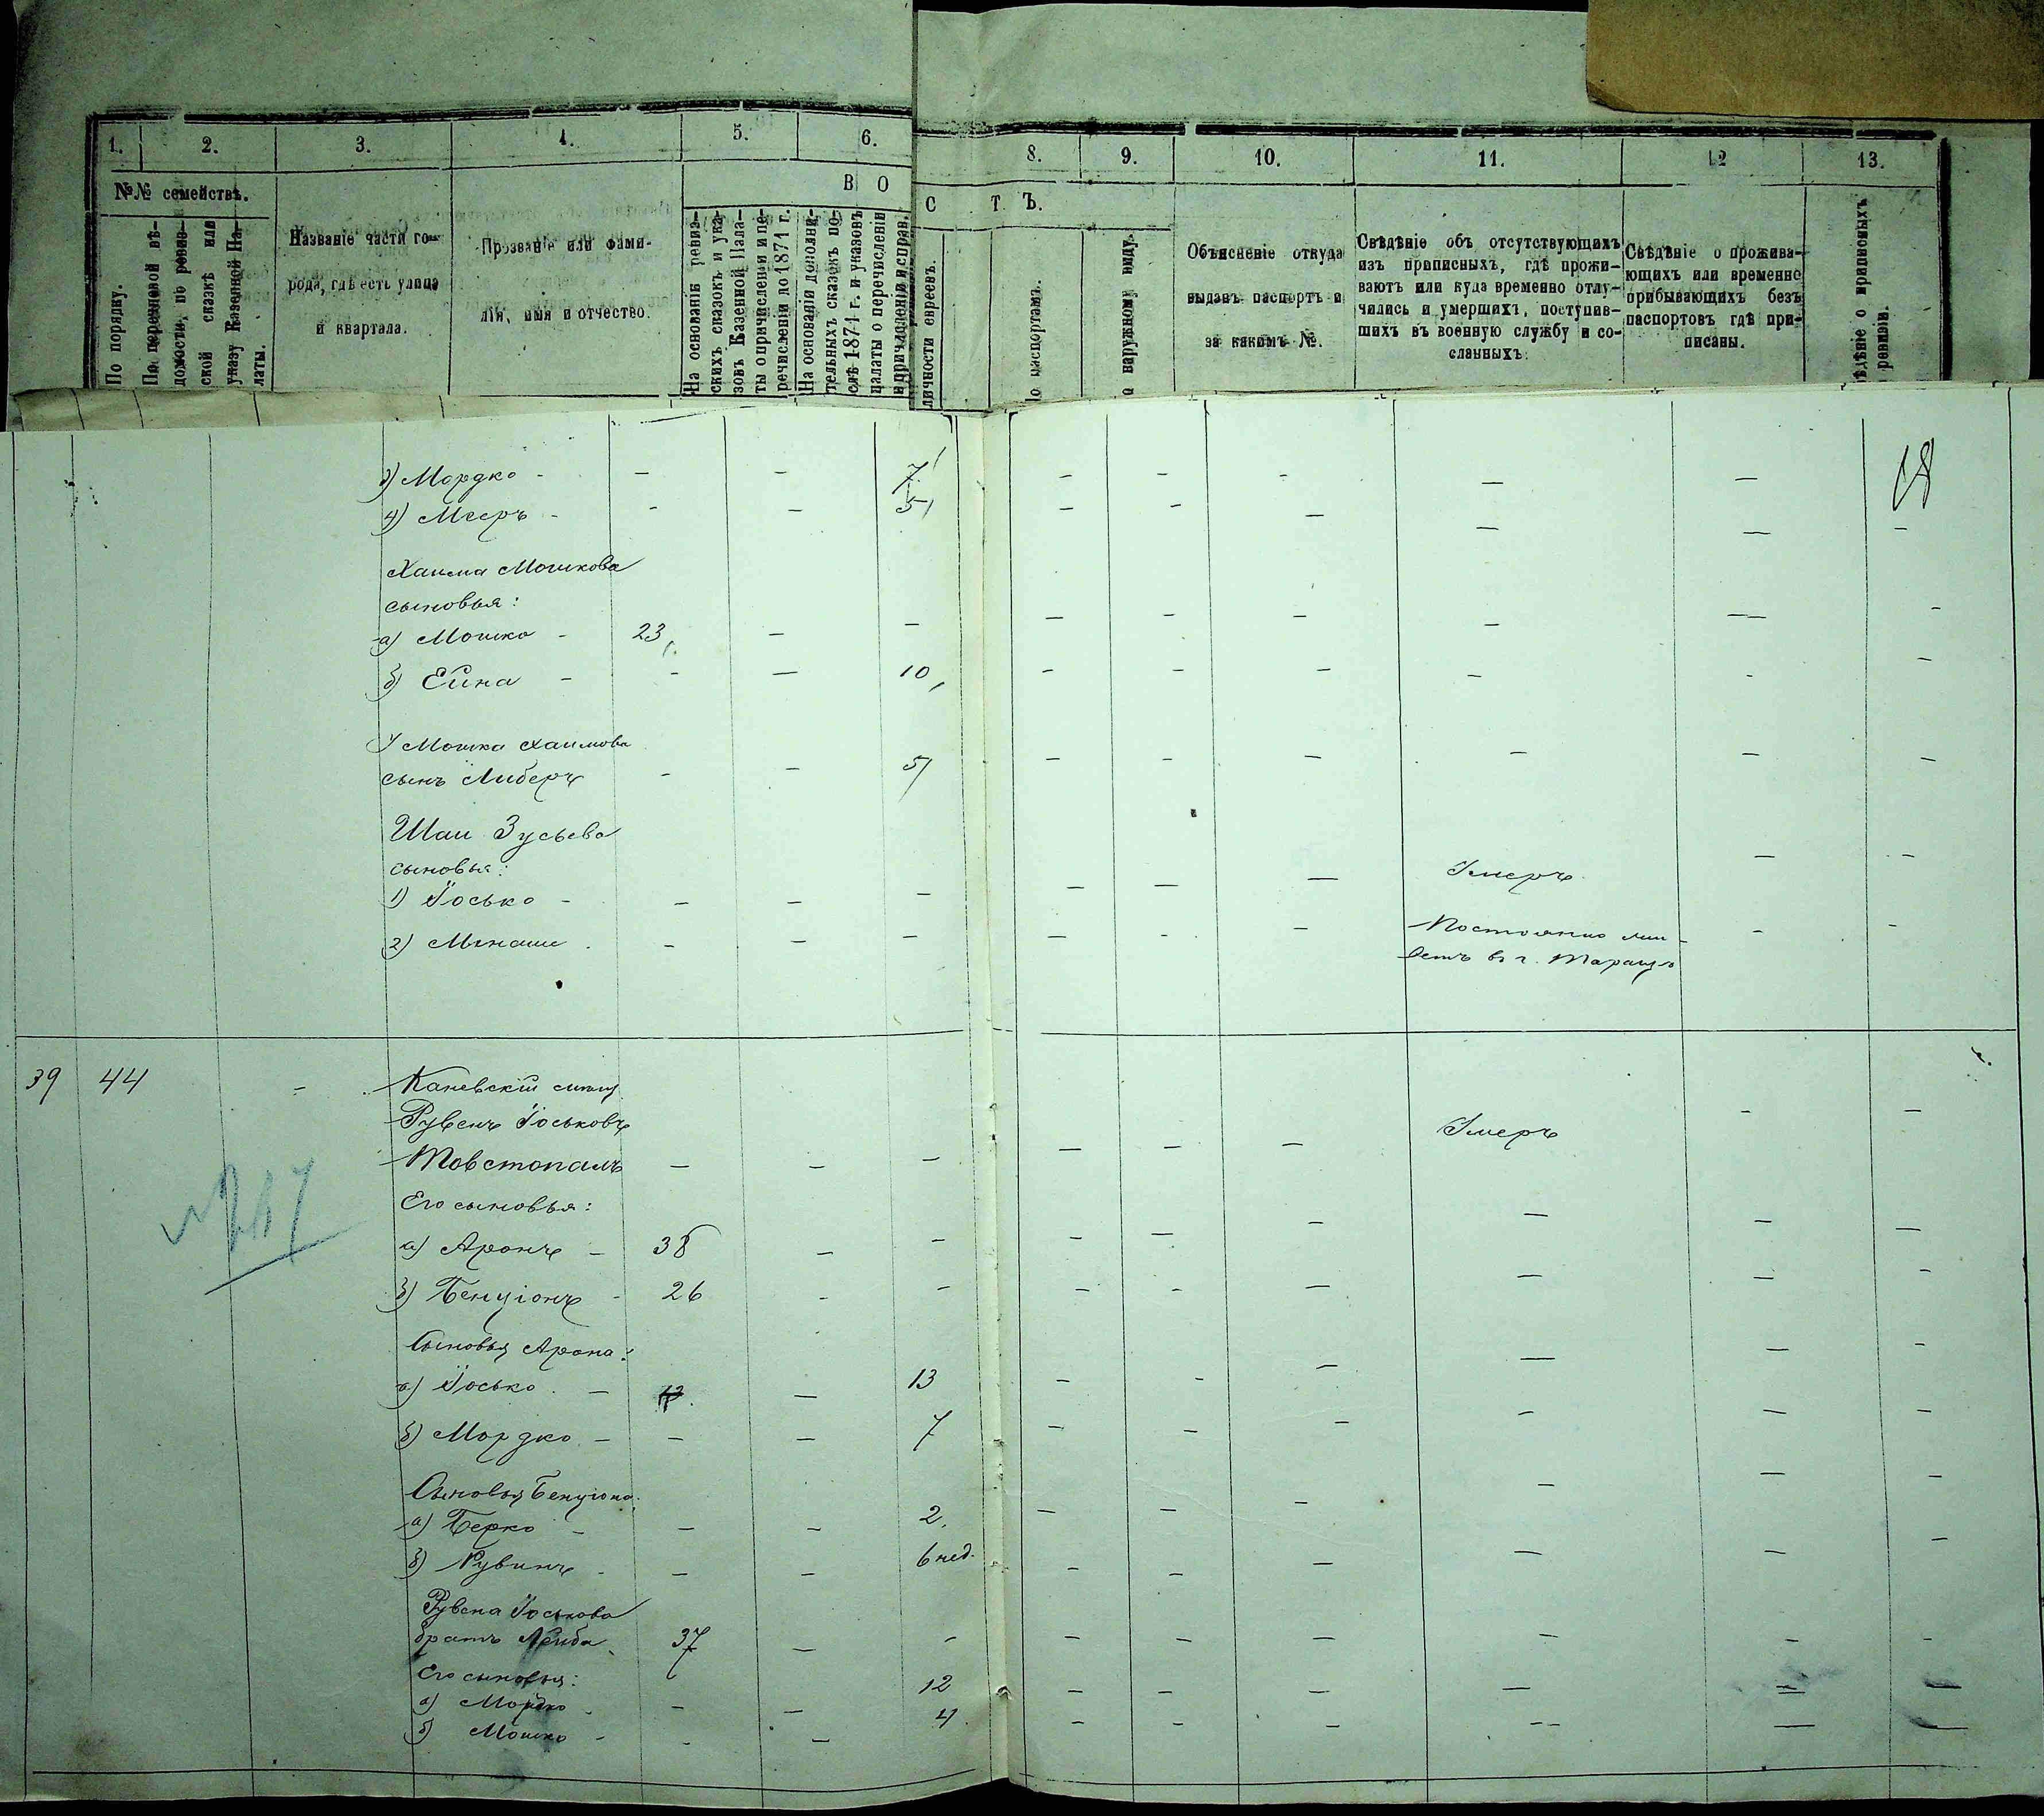 1. 2. 3. 4. 5. 6. 8. 9. 10. 11. 12 13.
№№ семействъ.
В О С Т Ъ.
По порядку.
По перечневой вѣ-
домости, по ревиз-
ской сказкѣ или
указу Казенной Па-
латы.
Названіе части го-
рода, гдѣ есть улица
и квартала.
Прозваніе или фами-
лія, имя и отчество.
На основаніи ревиз-
скихъ сказокъ и ука-
зовъ Казенной Пала-
ты о причисленіи и пе-
речисленіи до 1871 г.
На основаніи дополни-
тельныхъ сказокъ по-
слѣ 1871 г. и указовъ
палаты о перечисленіи
и причисленіи и справ.
личности евреевъ.
о паспортамъ.
о наружному виду.
Объясненіе откуда
выданъ паспортъ и
за какимъ №.
Свѣдѣніе объ отсутствующихъ
изъ приписныхъ, гдѣ прожи-
ваютъ или куда временно отлу-
чились и умершихъ, поступив-
шихъ въ военную службу и со-
сланныхъ.
Свѣдѣніе о прожива-
ющихъ или временно
прибывающихъ безъ
паспортовъ гдѣ при-
писаны.
ѣдѣніе о приписныхъ
ревизіи.
3) Мордко - — — 7 — — — — —
4) Мееръ - - — 5 — - — — — —
Хаима Мошкова
сыновья:
а) Мошко - 23 — — — — — — — -
б) Ейна - - — 10 - - - - - -
У Мошка Хаимова
сынъ Либеръ - — 5 — - — — — —
Шаи Зусьева
сыновья:
1) Іосько - — — — — — — Умеръ — -
2) Мынаше - — — — — - — Постоянно жи-
ветъ въ г. Таращѣ - -
39 44 - Каневскій мѣщ.
Рувенъ Іоськовъ
Товстопалъ — — — — — — Умеръ - —
Его сыновья:
а) Аронъ - 38 — — — — — — — —
б) Бенціонъ - 26 - — — - — — — -
Сыновья Арона:
а) Іосько. — — 13 — - — — — -
б) Мордко — — — 7 — — — — — —
Сыновья Бенціона:
а) Берко - — — 2. — — — — — —
б) Рувинъ - — — 6 нед. — — — — — —
Рувена Іоськова
братъ Лейба 37 — - — — — — - -
Его сыновья:
а) Мордко - — — 12 — — — — — —
б) Мошко - - — 4. - - — -- — —